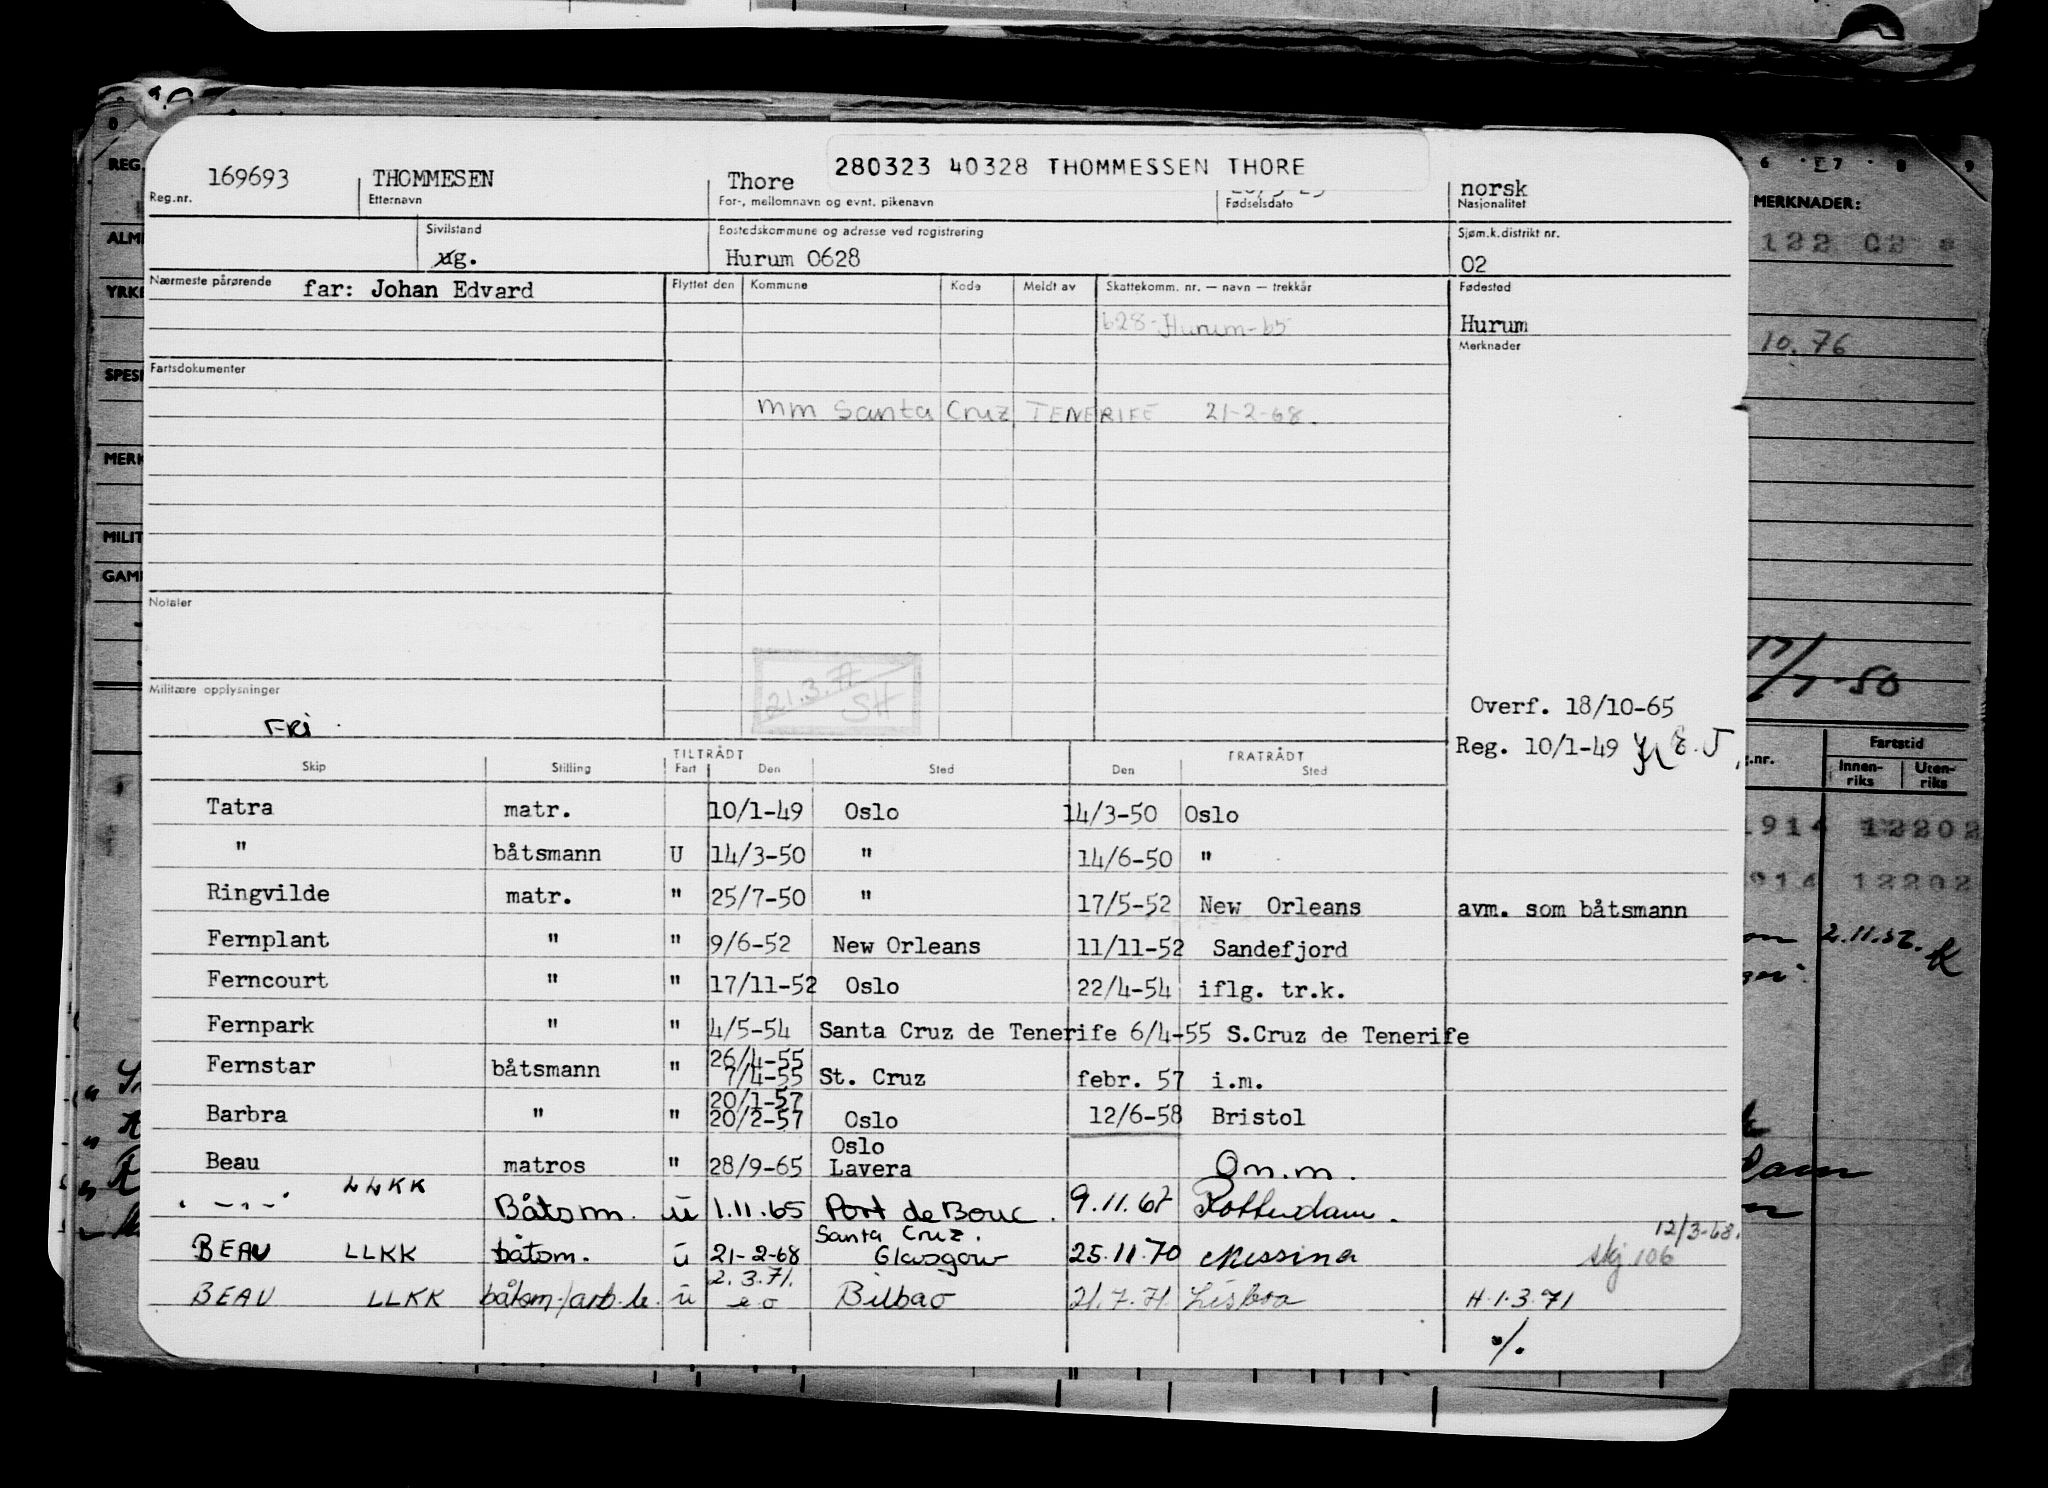 280323 40328 THOMMESSEN THORE
169693 THOMMESEN Thore norsk
Reg.nr. Etternavn For-, mellomnavn og evnt. pikenavn Fødselsdato Nasjonalitet
Sivilstand Bostedskommune og adresse ved registrering Sjøm.k.distrikt nr.
ug. Hurum 0628 02
Nærmeste pårørende far: Johan Edvard Flyttet den Kommune Kode Meldt av Skattekomm. nr. — navn — trekkår Fødested
628-Hurum-65 Hurum
Merknader
Fartsdokumenter
mm Santa Cruz TENERIFE 21-2-68.
Notater
21.3.77
SH
Militære opplysninger
FRi
Overf. 18/10-65
Reg. 10/1-49
TILTRÅDT FRATRÅDT
Skip Stilling Fart Den Sted Den Sted
Tatra matr. 10/1-49 Oslo 14/3-50 Oslo
" båtsmann U 14/3-50 " 14/6-50 "
Ringvilde matr. " 25/7-50 " 17/5-52 New Orleans avm. som båtsmann
Fernplant " " 9/6-52 New Orleans 11/11-52 Sandefjord
Ferncourt " " 17/11-52 Oslo 22/4-54 iflg. tr.k.
Fernpark " " 4/5-54 Santa Cruz de Tenerife 6/4-55 S.Cruz de Tenerife
26/4-55
Fernstar båtsmann " 7/4-55 St. Cruz febr. 57 i.m.
20/1-57
Barbra " " 20/2-57 Oslo 12/6-58 Bristol
Oslo
Beau matros " 28/9-65 Lavera Om.m.
" - " - LLKK Båtsm. u 1.11.65 Port de Bouc. 9.11.67 Rotterdam.
Santa Cruz. 12/3-68.
BEAU LLKK båtsm. u 21-2-68 Glasgow 25.11.70 Messina skj 106
2.3.71.
BEAU LLKK båtsm./arb.le. u e o Bilbao 21.7.71 Lisboa H.1.3.71
./.
REG.
YRKE
MERKNADER:
122 02
10.76
17/7-50
Fartstid
Innenriks Utenriks
1914 12202
914 12202
2.11.56.